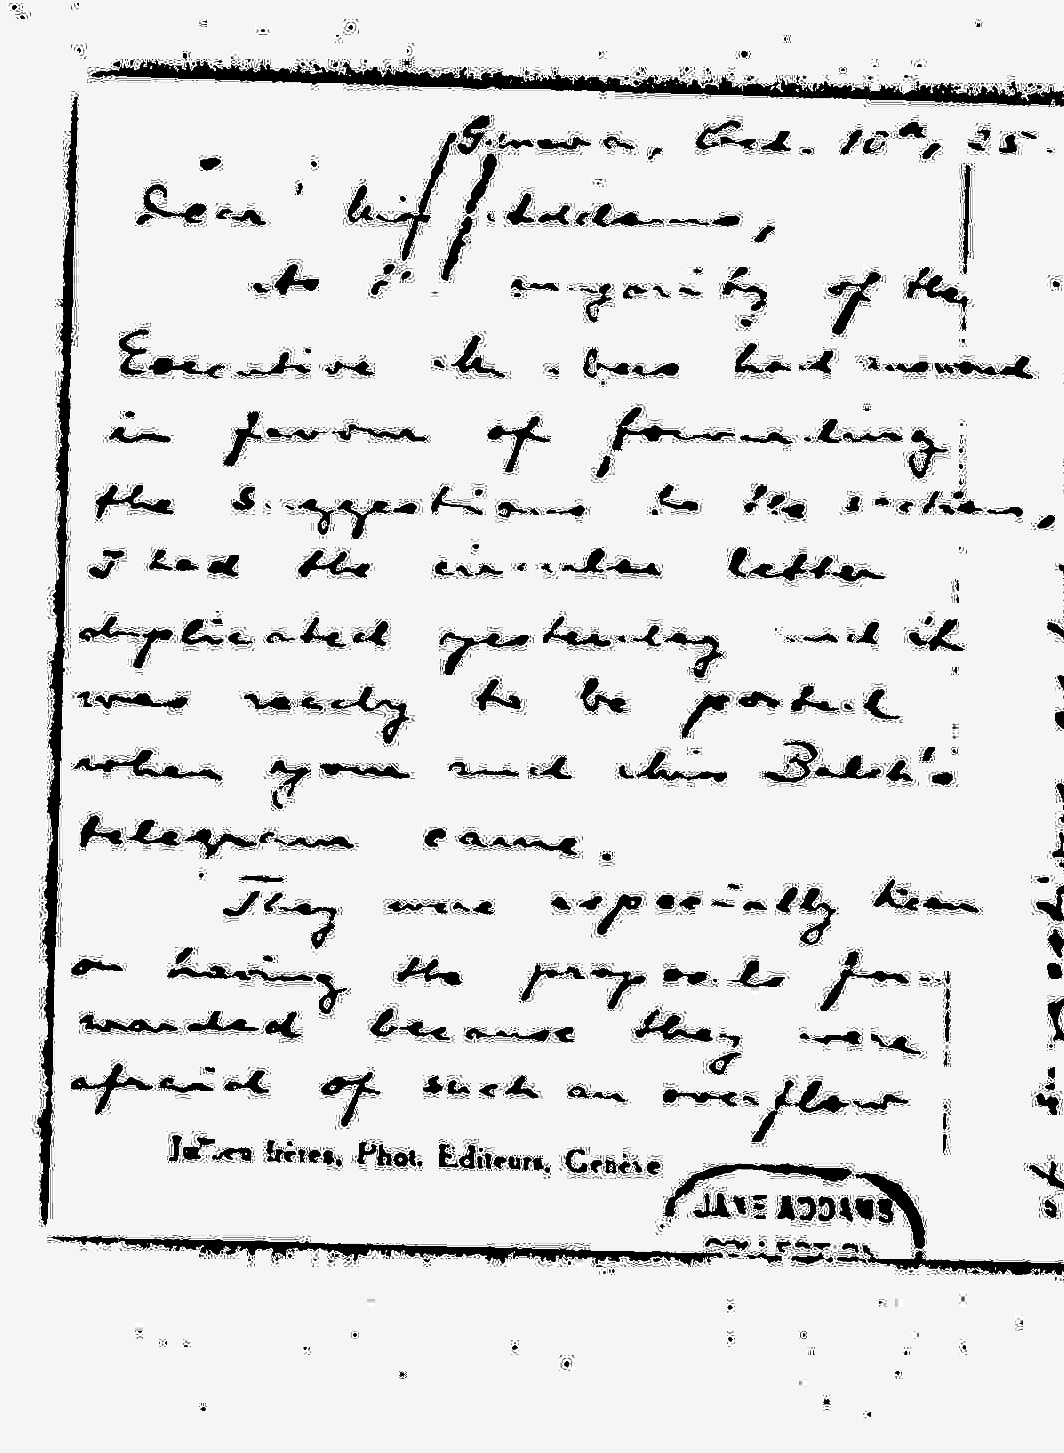 Geneva, Oct. 10th, 25.
Dear Miss Addams,
As a majority of the
Executive Members had answered
in favour of forwarding
the suggestions to the sections,
I had the circular letter
duplicated yesterday and it
was ready to be posted
when your and Miss Balch's
telegram came.
They were especially keen
on having the proposals for-
warded because they were
afraid of such an overflow
Jullien frères, Phot. Editeurs, Genève
JANE ADDAMS
COLLECTION